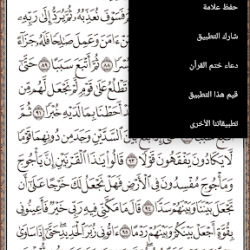 حفظ علامة
شارك التطبيق
دعاء ختم القرآن
قيم هذا التطبيق
تطبيقاتنا الأخرى
فَسَوْفَ نُعَذِّبُهُ ثُمَّ يُرَدُّ إِلَىٰ رَبِّهِ
ءَامَنَ وَعَمِلَ صَٰلِحًا فَلَهُ جَزَآءً
٨٨ ثُمَّ أَتْبَعَ سَبَبًا
تَطْلُعُ عَلَىٰ قَوْمٍ لَّمْ نَجْعَل لَّهُم مِّن
أَحَطْنَا بِمَا لَدَيْهِ خُبْرًا ٩١
بَيْنَ ٱلسَّدَّيْنِ وَجَدَ مِن دُونِهِمَا قَوْمًا
لَّا يَكَادُونَ يَفْقَهُونَ قَوْلًا ٩٣ قَالُوا۟ يَٰذَا ٱلْقَرْنَيْنِ إِنَّ يَأْجُوجَ
وَمَأْجُوجَ مُفْسِدُونَ فِى ٱلْأَرْضِ فَهَلْ نَجْعَلُ لَكَ خَرْجًا عَلَىٰٓ أَن
تَجْعَلَ بَيْنَنَا وَبَيْنَهُمْ سَدًّا ٩٤ قَالَ مَا مَكَّنِّى فِيهِ رَبِّى خَيْرٌ فَأَعِينُونِى
بِقُوَّةٍ أَجْعَلْ بَيْنَكُمْ وَبَيْنَهُمْ رَدْمًا ٩٥ ءَاتُونِى زُبَرَ ٱلْحَدِيدِ حَتَّىٰٓ إِذَا